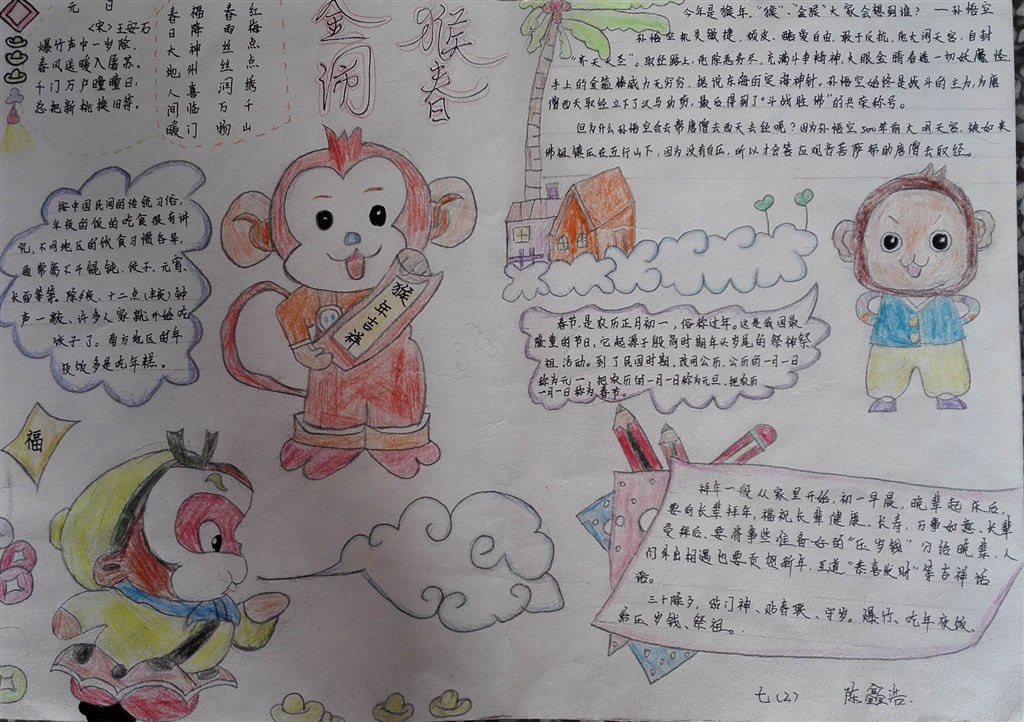 元 日
〈宋〉王安石
爆竹声中一岁除,
春风送暖入屠苏。
千门万户曈曈日,
总把新桃换旧符。
红梅点点绣千山
春雨丝丝润万物
福降神州喜临门
春日大地人间暖
金猴闹春
今年是猴年,“猴”、“金猴”大家会想到谁? —孙悟空
孙悟空机灵敏捷、顽皮、酷爱自由、敢于反抗,他大闹天宫,自封
“齐天大圣”。取经路上,他除恶务尽,充满斗争精神,火眼金睛看透一切妖魔怪,
手上的金箍棒威力无穷穷、据说东海的定海神针。孙悟空始终是战斗的主力,为唐
僧西天取经立下了汉马功劳,最后得到了“斗战胜佛”的光荣称号。
但为什么孙悟空会去帮唐僧去西天去经呢?因为孙悟空500年前大闹天宫,被如来
佛祖镇压在五行山下,因为没有自由,所以才会答应观音菩萨帮助唐僧去取经。
按中国民间的传统习俗,
年夜的饭的吃食很有讲
究,不同地区的饮食习惯各异,
通常离不开馄饨、饺子、元宵、
长面等等。除夕夜,十二点(半夜)钟
声一敲,许多人家就开始吃
饺子了。南方地区的年
夜饭多是吃年糕。
猴年吉祥
春节,是农历正月初一,俗称过年。这是我国最
隆重的节日,它起源于殷商时期年头岁尾的祭神祭
祖活动。到了民国时期,改用公历,公历的一月一日
称为元一,把农历的一月一日称为元旦,把农历
一月一日称为春节。
福
拜年一般从家里开始,初一早晨,晚辈起床后,
要向长辈拜年,福祝长辈健康、长寿,万事如意、长辈
受拜后,要将事些准备好的“压岁钱”分给晚辈,人
们外出相遇也要贡祝新年,互道“恭喜发财”等吉祥话
语。
三十除夕,贴门神、贴春联、守岁。爆竹、吃年夜饭、
给压岁钱、祭祖。
七(2) 陈鑫浩